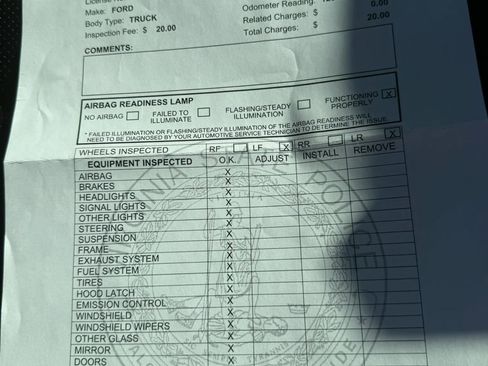 Make: FORD
Odometer Reading:
0.00
Body Type: TRUCK
Related Charges:
20.00
Inspection Fee: $ 20.00
Total Charges: $
COMMENTS:
AIRBAG READINESS LAMP
NO AIRBAG
FAILED TO ILLUMINATE
FLASHING/STEADY ILLUMINATION
FUNCTIONING PROPERLY X
* FAILED ILLUMINATION OR FLASHING/STEADY ILLUMINATION OF THE AIRBAG READINESS WILL
NEED TO BE DIAGNOSED BY YOUR AUTOMOTIVE SERVICE TECHNICIAN TO DETERMINE THE ISSUE.
WHEELS INSPECTED RF LF X RR LR X
EQUIPMENT INSPECTED O.K. ADJUST INSTALL REMOVE
AIRBAG X
BRAKES X
HEADLIGHTS X
SIGNAL LIGHTS X
OTHER LIGHTS X
STEERING X
SUSPENSION X
FRAME X
EXHAUST SYSTEM X
FUEL SYSTEM X
TIRES X
HOOD LATCH X
EMISSION CONTROL X
WINDSHIELD X
WINDSHIELD WIPERS X
OTHER GLASS X
MIRROR X
DOORS X